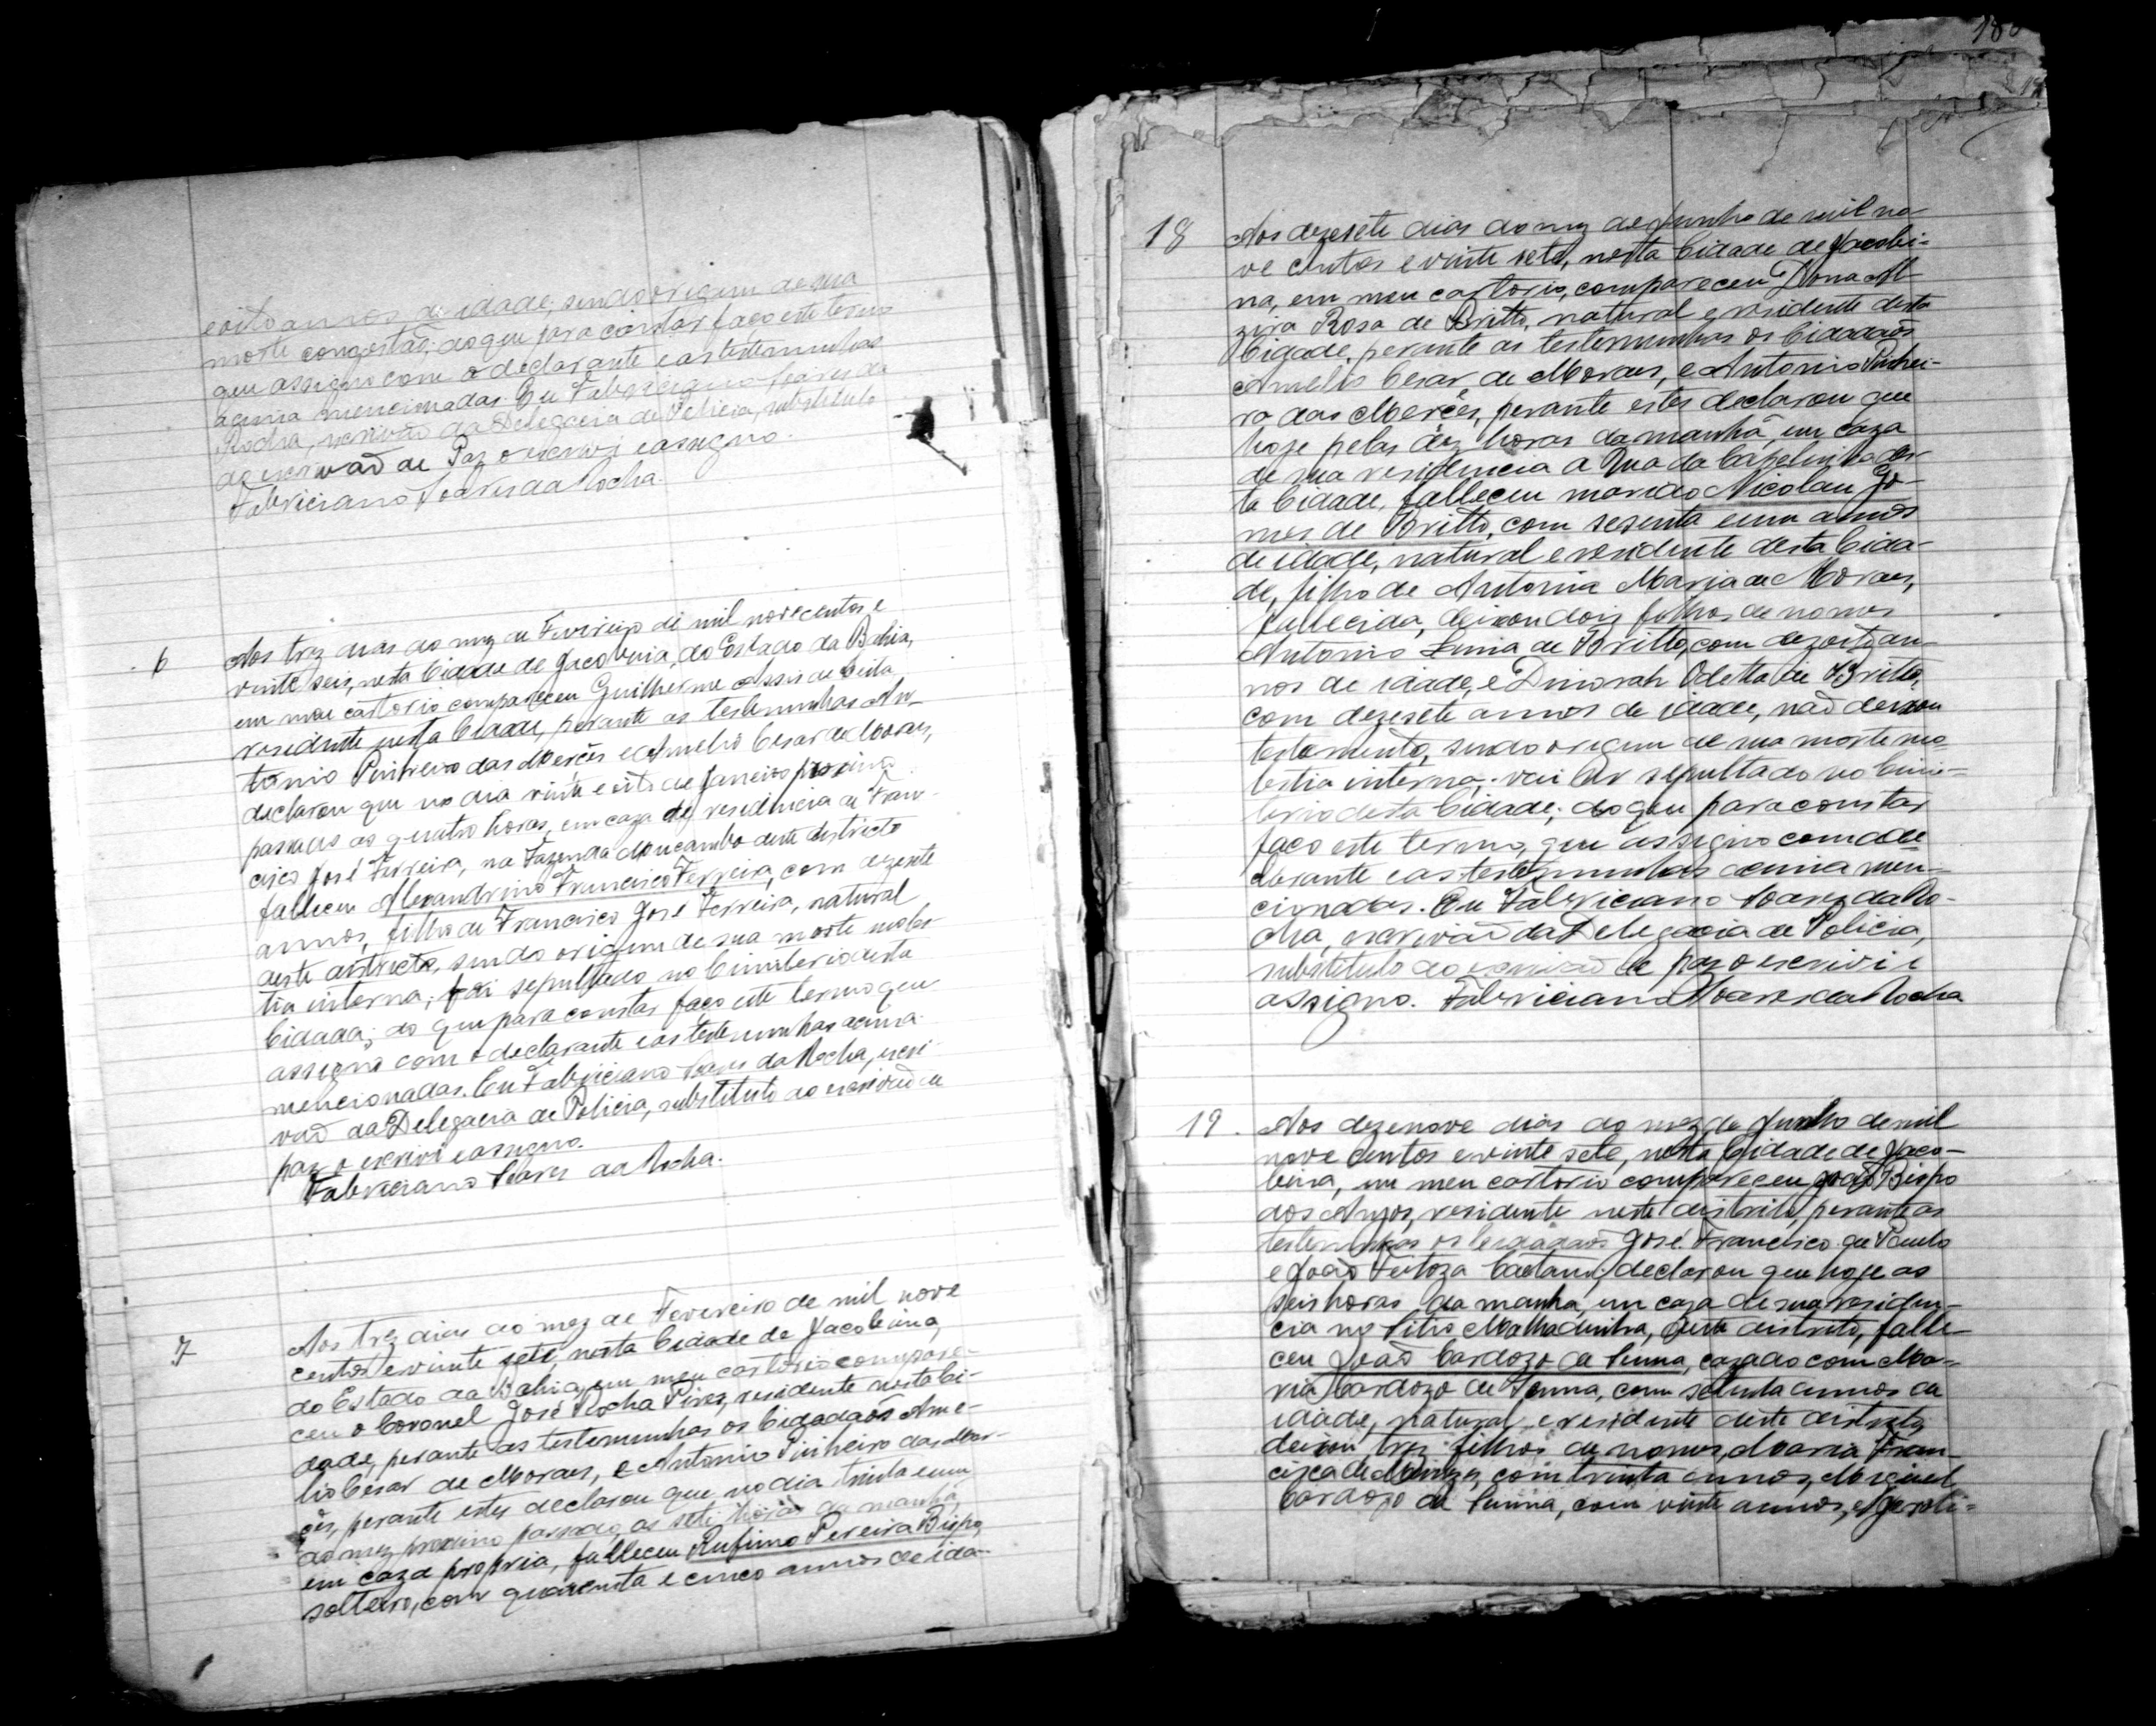 e oito annos de idade, sendo origem de sua
morte congestão; do que para constar faço este termo
que assigno com o declarante e as testemunhas
acima mencionadas. Eu Fabriciano Soares da
Rocha, escrivão da Delegacia de Policia, substituto
do escrivão de Paz o escrevi e assigno.
Fabriciano Soares da Rocha.
6 Aos trez dias do mez de Fevereiro de mil novecentos e
vinte seis, nesta Cidade de Jacobina, do Estado da Bahia,
em meu cartorio compareceu Guilherme Assis de
residente nesta Cidade, perante as testemunhas An-
tonio Pinheiro das Mercês e Amelio Cesar de Moraes,
declarou que no dia vinte e oito de Janeiro proximo
passado as quatro horas, em caza de residencia de Fran-
cisco José Ferreira, na Fazenda Mucambo deste districto
falleceu Alexandrino Francisco Ferreira, com dezesete
annos, filho de Francisco José Ferreira, natural
deste districto, sendo origem de sua morte moles-
tia interna; foi sepultado no Cimiterio desta
Cidade; do que para constar faço este termo que
assigno com o declarante e as testemunhas acima
mencionadas. Eu Fabriciano Soares da Rocha, escri-
vão da Delegacia de Policia, substituto do escrivão de
paz o escrevi e assigno.
Fabriciano Soares da Rocha.
7 Aos trez dias do mez de Fevereiro de mil nove
centos e vinte sete, nesta Cidade de Jacobina,
do Estado da Bahia, em meu cartorio compare-
ceu o Coronel José Rocha Pires, residente nesta Ci-
dade, perante as testemunhas os Cidadãos Ame-
lio Cesar de Moraes, e Antonio Pinheiro das Mer-
cês, perante estes declarou que no dia trinta e um
do mez proximo passado, as sete horas da manhã,
em caza propria, falleceu Rufino Pereira Bispo,
solteiro, com quarenta e cinco annos de ida-
180
18 Aos dezesete dias do mez de Junho de mil no-
ve centos e vinte sete, nesta Cidade de Jacobi-
na, em meu cartorio, compareceu Dona Al-
zira Rosa de Britto, natural e residente desta
Cidade, perante as testemunhas os Cidadãos
Amelio Cesar de Moraes, e Antonio Pinhei-
ro das Mercês, perante estes declarou que
hoje pelas dez horas da manhã, em caza
de sua residencia a Rua da Capelinha des-
ta Cidade, falleceu marido Nicolau Go-
mes de Britto, com sesenta e um annos
de idade, natural e residente desta Cida-
de, filho de Antonia Maria de Moraes,
fallecida, deixou dois filhos de nomes
Antonio Lima de Britto, com dezoito an-
nos de idade, e Dinorah Odetta de Britto,
com dezesete annos de idade, não deixou
testamento, sendo origem de sua morte mo-
lestia interna; vai ser sepultado no Cimi-
terio desta Cidade; do que para constar
faço este termo, que assigno com a de-
clarante e as testemunhas acima men-
cionadas. Eu Fabriciano Soares da Ro-
cha, escrivão da Delegacia de Policia,
substituto do escrivão de paz o escrevi e
assigno. Fabriciano Soares da Rocha
19. Aos dezenove dias do mez de Junho de mil
nove centos e vinte sete, nesta Cidade de Jaco-
bina, em meu cartorio compareceu João Bispo
dos Anjos, residente neste distrito, perante as
testemunhas os Cidadãos José Francisco de Paula
e João Feitoza Caetano, declarou que hoje as
seis horas da manhã, em caza de sua residen-
cia no Sitio Malhadinha, deste distrito, falle-
ceu João Cardozo de Senna, cazado com Ma-
ria Cardozo de Senna, com setenta annos de
idade, natural e residente deste distrito,
deixou trez filhos de nomes, Maria Fran-
cisca de Menezes, com trinta annos, Miguel
Cardozo de Senna, com vinte annos, e